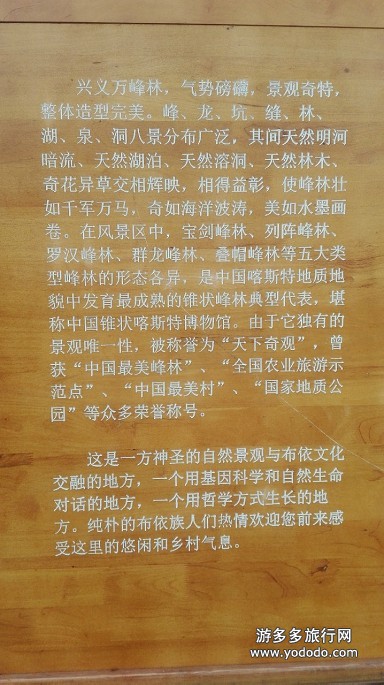 兴义万峰林，气势磅礴，景观奇特，
整体造型完美。峰、龙、坑、缝、林、
湖、泉、洞八景分布广泛，其间天然明河
暗流、天然湖泊、天然溶洞、天然林木、
奇花异草交相辉映，相得益彰，使峰林壮
如千军万马，奇如海洋波涛，美如水墨画
卷。在风景区中，宝剑峰林、列阵峰林、
罗汉峰林、群龙峰林、叠帽峰林等五大类
型峰林的形态各异，是中国喀斯特地质地
貌中发育最成熟的锥状峰林典型代表，堪
称中国锥状喀斯特博物馆。由于它独有的
景观唯一性，被称誉为“天下奇观”，曾
获“中国最美峰林”、“全国农业旅游示
范点”、“中国最美村”、“国家地质公
园”等众多荣誉称号。
这是一方神圣的自然景观与布依文化
交融的地方，一个用基因科学和自然生命
对话的地方，一个用哲学方式生长的地
方。纯朴的布依族人们热情欢迎您前来感
受这里的悠闲和乡村气息。
游多多旅行网
www.yododo.com